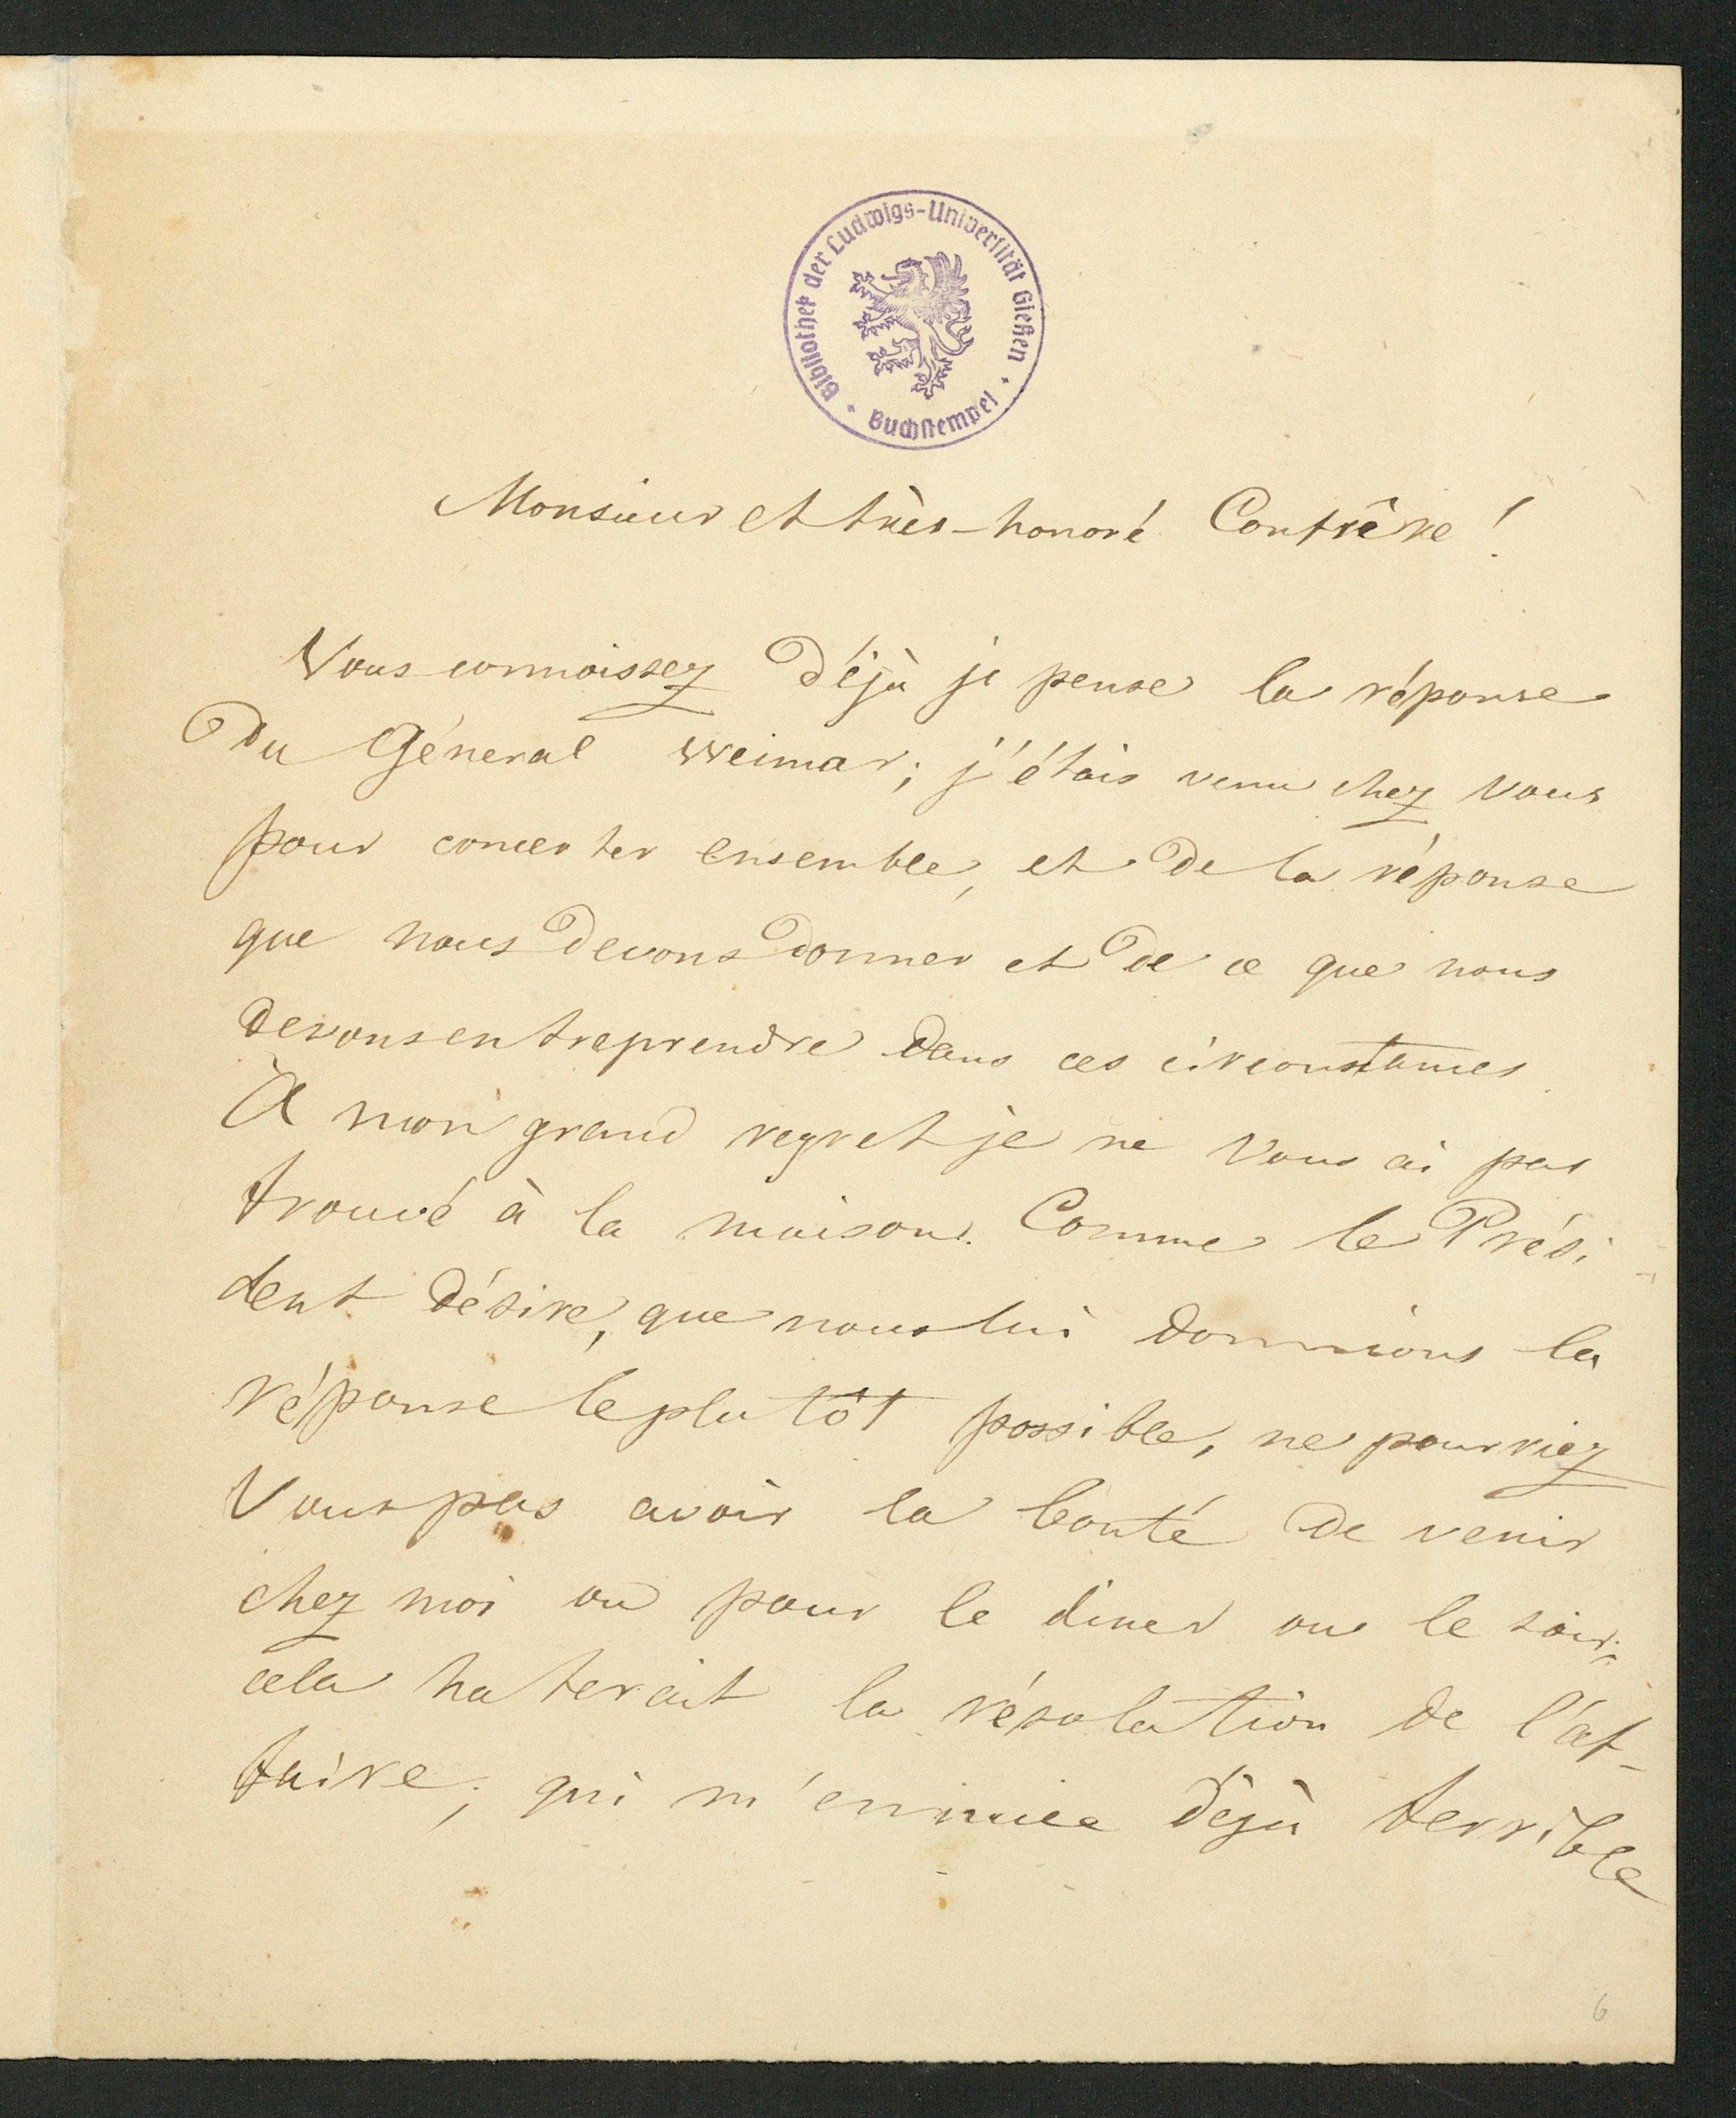 Bibliothek der Ludwigs-Universität Gießen
Buchstempel
Monsieur et très-honoré Confrêre!
Vous connoissez déjà je pense la réponse
du Géneral Weimar; j'étais venu chez vous
pour concerter ensemble, et de la réponse
que nous devons donner et de ce que nous
devons entreprendre dans ces circonstances.
À mon grand regret je ne vous ai pas
trouvé à la maison. Comme le Prési-
dent désire, que nous lui donnions la
réponse le plutôt possible, ne pourriez
vous pas avoir la bonté de venir
chez moi ou pour le diner ou le soir;
cela haterait la résolution de l'af-
faire, qui m'ennuie déjà terrible
6